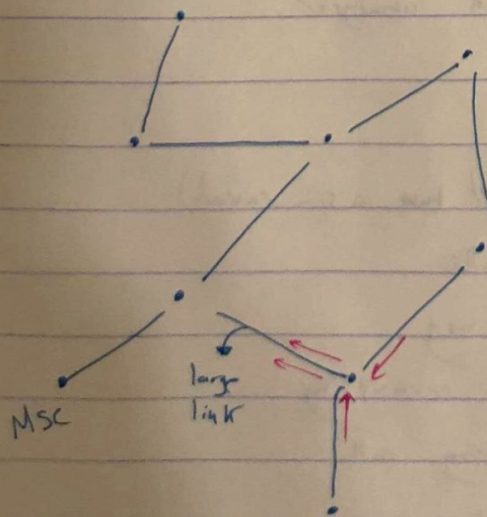 large
link
MSC